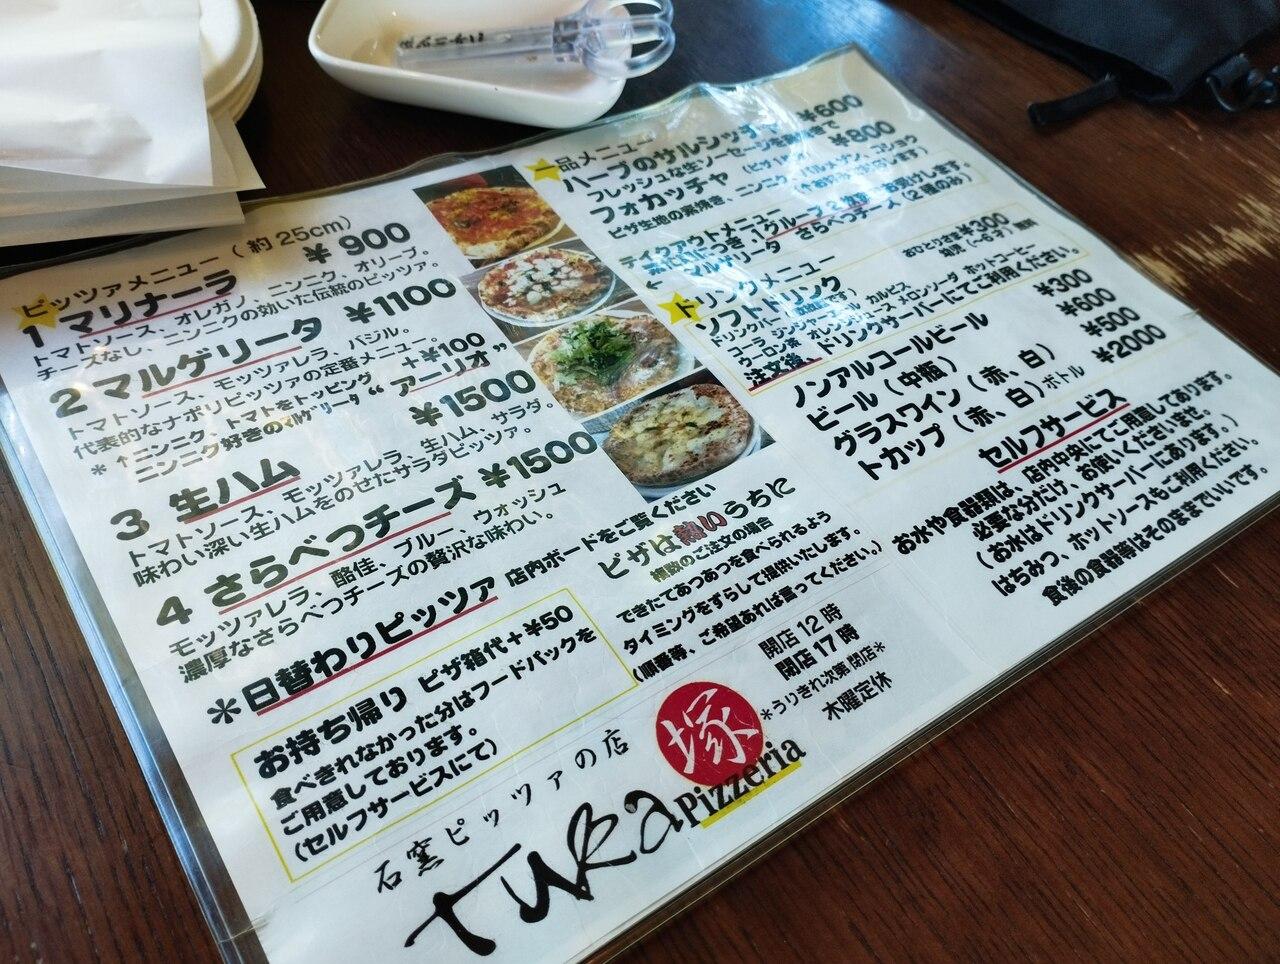 ピッツァメニュー（約25cm）
1 マリナーラ ￥900
トマトソース、オレガノ、ニンニク、オリーブ。
チーズなし、ニンニクの効いた伝統のピッツァ。
2 マルゲリータ ￥1100
トマトソース、モッツァレラ、バジル。
代表的なナポリピッツァの定番メニュー。
*↑ニンニク、トマトをトッピング ＋￥100
ニンニク好きのマルゲリータ “アーリオ”
3 生ハム ￥1500
トマトソース、モッツァレラ、生ハム、サラダ。
味わい深い生ハムをのせたサラダピッツァ。
4 さらべつチーズ ￥1500
モッツァレラ、酪佳、ブルー、ウォッシュ
濃厚なさらべつチーズの贅沢な味わい。
*日替わりピッツァ 店内ボードをご覧ください
お持ち帰り ピザ箱代＋￥50
食べきれなかった分はフードパックを
ご用意しております。
（セルフサービスにて）
石窯ピッツァの店
TUKA Pizzeria
塚
一品メニュー
ハーブのサルシッチャ ￥600
フレッシュな生ソーセージを
フォカッチャ ￥800
ピザ生地の素焼き、ニンニク、パルメザン、コショウ
テイクアウトメニュー
マルゲリータ さらべつチーズ（2種のみ）
ドリンクメニュー
ソフトドリンク おひとり様￥300
ドリンクバー 幼児（～6才）無料
コーラ ジンジャーエール カルピス
ウーロン茶 オレンジジュース メロンソーダ ホットコーヒー
注文後、ドリンクサーバーにてご利用ください。
ノンアルコールビール ￥300
ビール（中瓶） ￥600
グラスワイン（赤、白） ￥500
トカップ（赤、白）ボトル ￥2000
セルフサービス
お水や食器類は、店内中央にてご用意してあります。
必要な分だけ、お使いくださいませ。
（お水はドリンクサーバーにあります。）
はちみつ、ホットソースもご利用ください。
食後の食器等はそのままでいいです。
ピザは熱いうちに
複数のご注文の場合
できたてあつあつを食べられるよう
タイミングをずらして提供いたします。
（順番等、ご希望あれば言ってください。）
開店12時
閉店17時
*うりきれ次第 閉店*
木曜定休